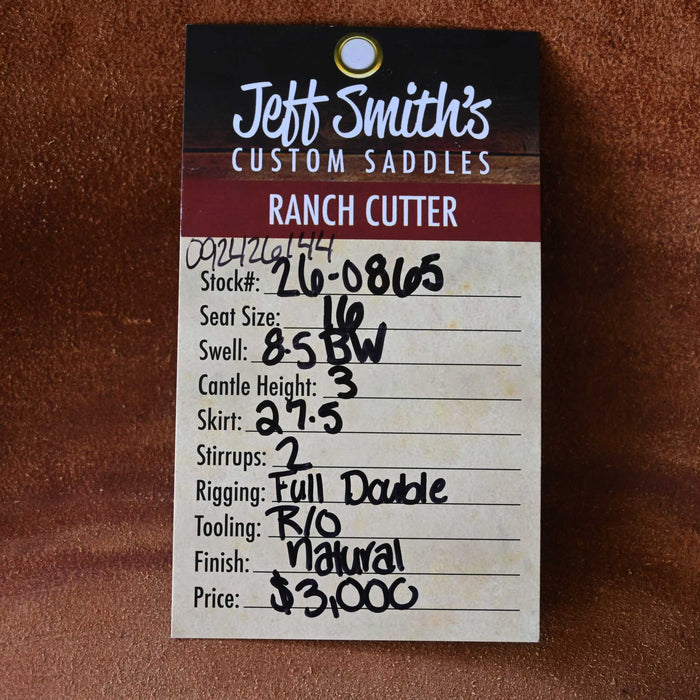 Jeff Smith's
CUSTOM SADDLES
RANCH CUTTER
092426144
Stock#: 26-0865
Seat Size: 16
Swell: 8.5 BW
Cantle Height: 3
Skirt: 27.5
Stirrups: 2
Rigging: Full Double
Tooling: R/O
Finish: natural
Price: $3,000